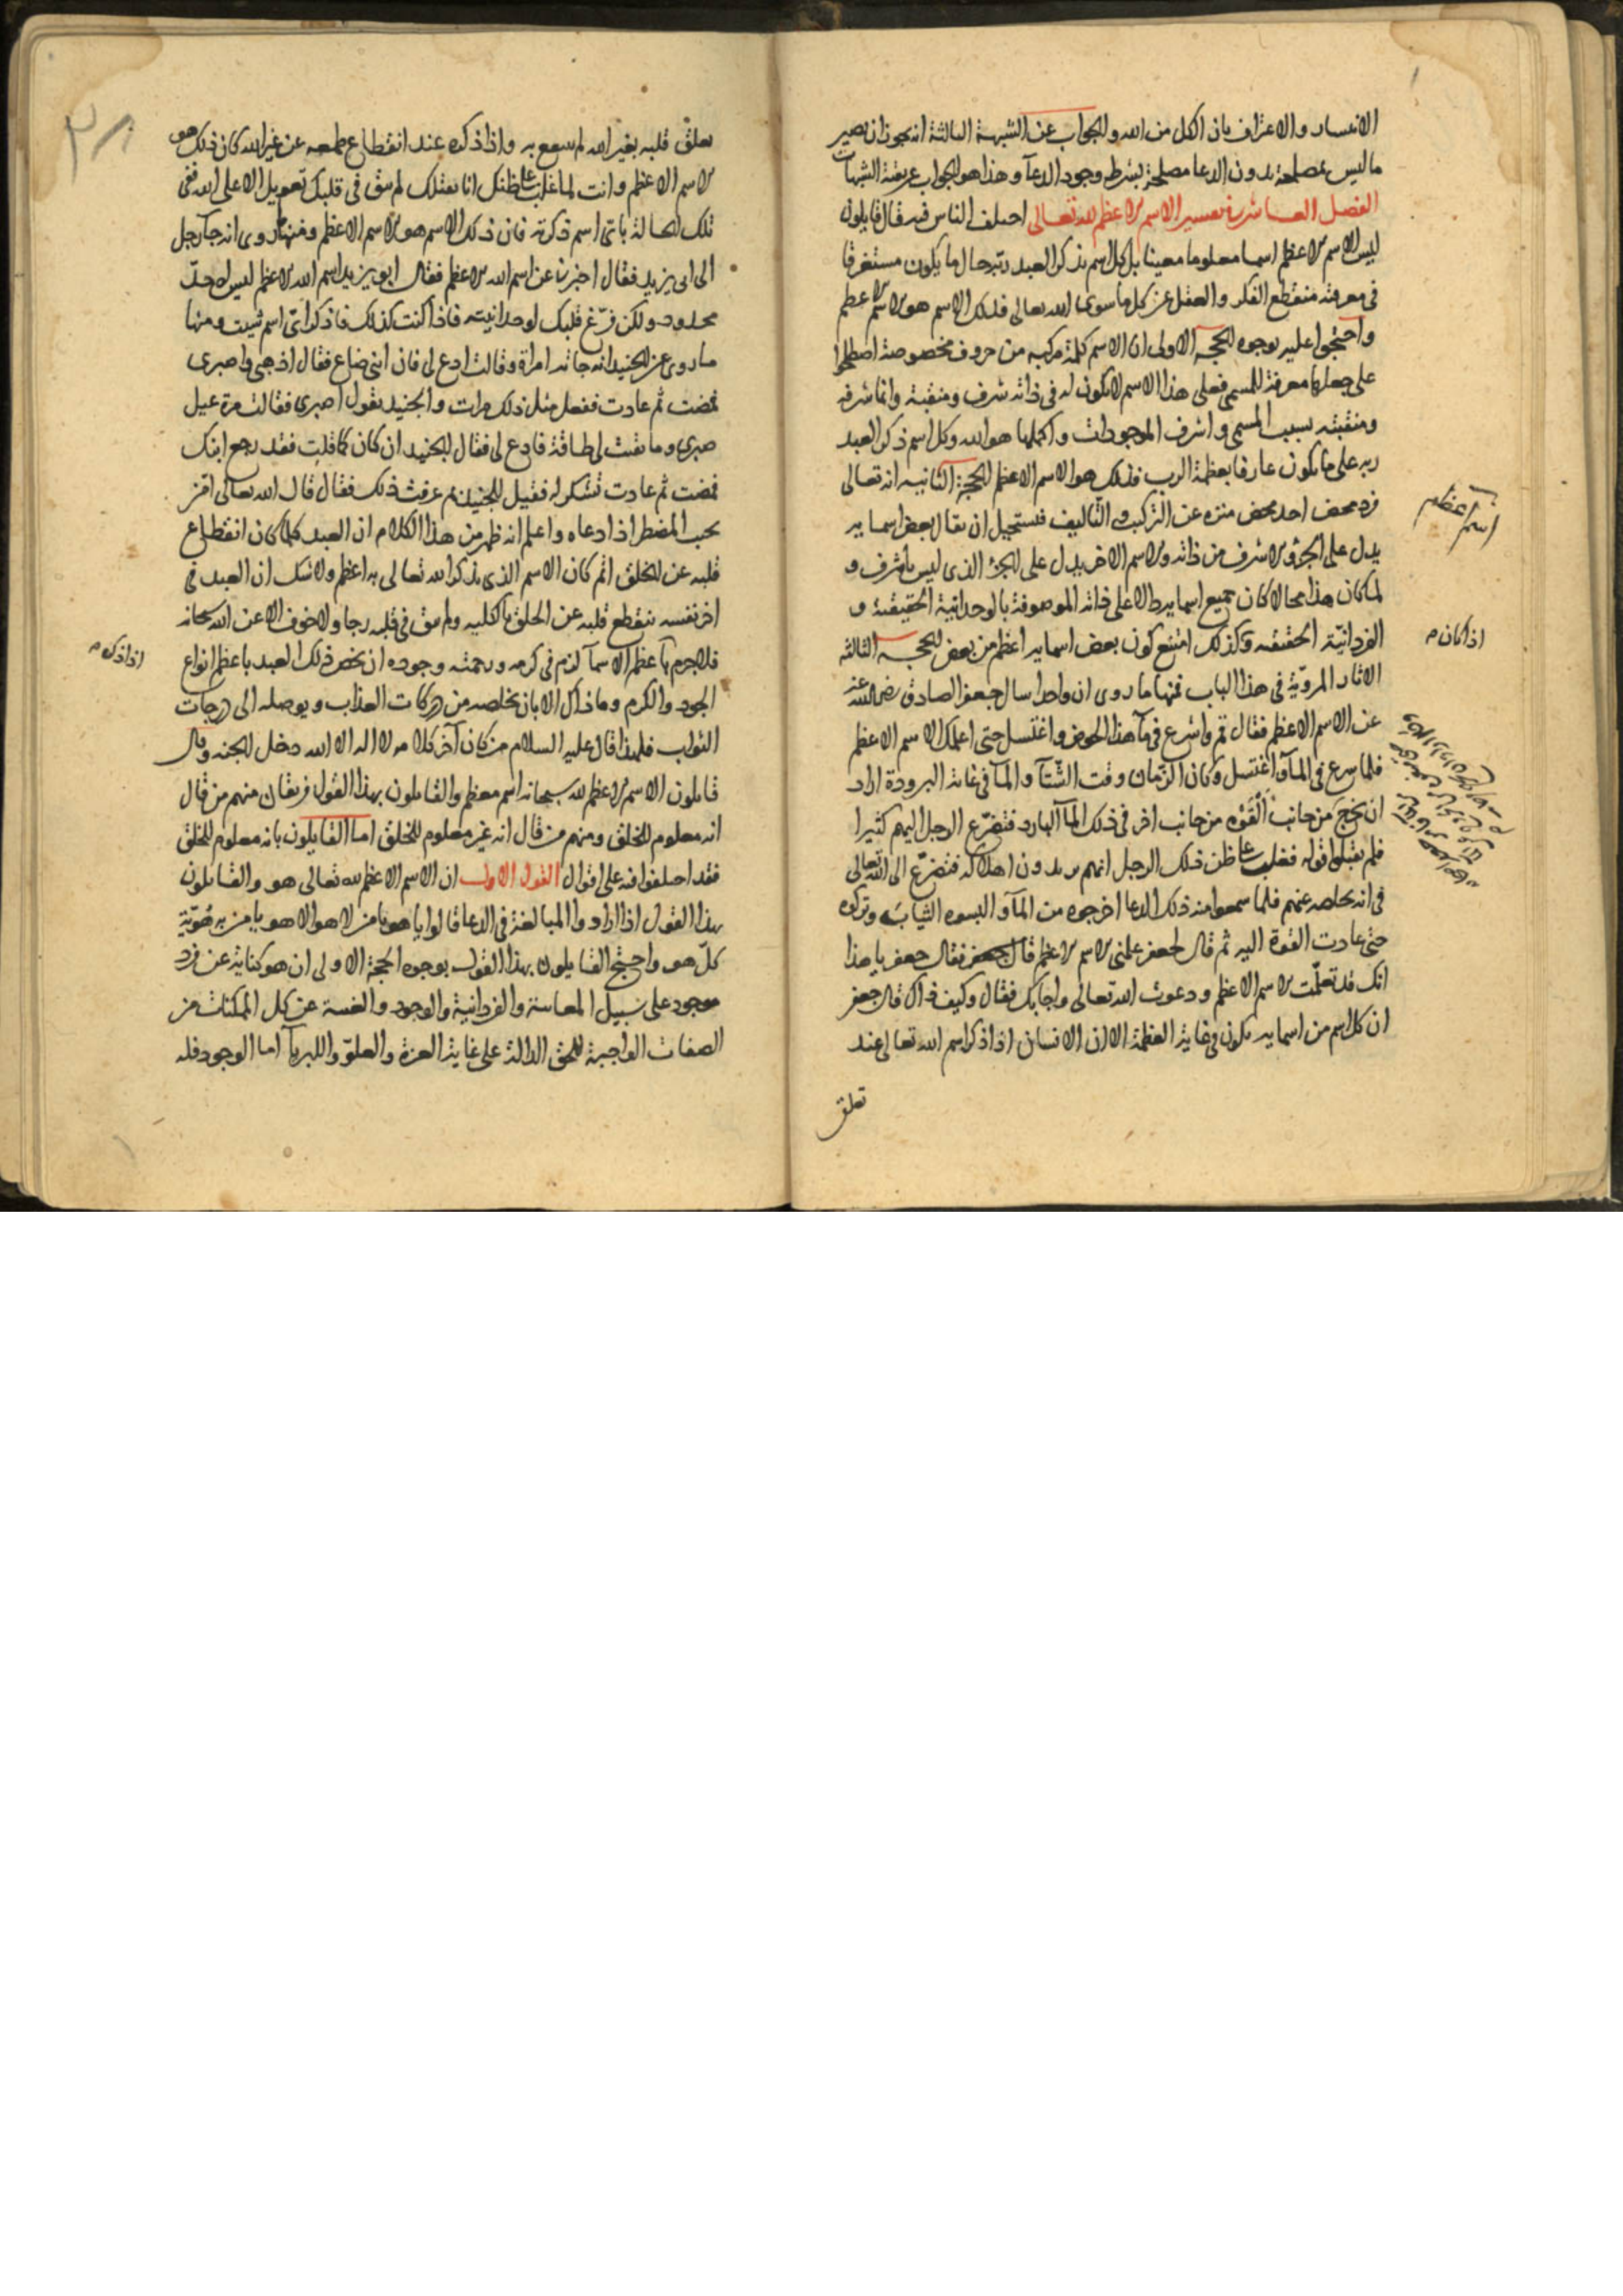 الانكسار والاعتراف بان الكل من الله والجواب عن الشبهة الثالثة انه يجوز ان يصير
ما ليس بمصلحة بدون الدعا مصلحة بشرط وجود الدعآ وهذا هو الجواب عن بقية الشبهات
الفصل العاشر في تفسير الاسم الاعظم لله تعالى اختلف الناس فيه فقال قايلون
ليس الاسم الاعظم اسما معلوما معينا بل كل اسم يذكر العبد ربه حال ما يكون مستغرقا
في معرفته منقطع الفكر والعقل عن كل ما سوى الله تعالى فذلك الاسم هو الاسم الاعظم
واحتجوا عليه بوجوه الحجة الاولى ان الاسم كلمة مركبة من حروف مخصوصة اصطلحوا
على جعلها معرفة للمسمى فعلى هذا الاسم لا يكون له في ذاته شرف ومنقبة وانما شرفه
ومنقبته بسبب المسمى واشرف الموجودات واكملها هو الله وكل اسم ذكر العبد
ربه على ما يكون عارفا بعظمة الرب فذلك هو الاسم الاعظم الحجة الثانية انه تعالى
فرد محض احد محض منزه عن التركيب والتاليف فيستحيل ان يقال بعض اسمايه
يدل على الجزؤ الاشرف من ذاته والاسم الاخر يدل على الجزؤ الذي ليس باشرف و
لما كان هذا محالا كان جميع اسمايه دالا على ذاته الموصوفة بالوحدانية الحقيقية و
الفردانية الحقيقية وكذلك امتنع كون بعض اسمايه اعظم من بعض الحجة الثالثة
الاثار المروية في هذا الباب فمنها ما روى ان واحدا سال جعفر الصادق رضى الله عنه
عن الاسم الاعظم فقال قم واشرع في مآ هذا الحوض واغتسل حتى اعلمك الاسم الاعظم
فلما شرع في المآ واغتسل وكان الزمان وقت الشتآ والمآ في غاية البرودة اراد
ان يخرج من جانب القوه من جانب اخر في ذلك المآ البارد فتضرع الرجل اليهم كثيرا
فلم يقبلوا قوله فغلب على ظن ذلك الرجل انهم يريدون اهلاكه فتضرع الى الله تعالى
في انه يخلصه عنهم فلما سمعوا منه ذلك الدعا اخرجوه من المآ والبسوه الثياب وتركوه
حتى عادت القوة اليه ثم قال لجعفر علمني الاسم الاعظم فقال جعفر يا هذا
انك قد تعلمت الاسم الاعظم ودعوت الله تعالى واجابك فقال وكيف ذاك قال جعفر
ان كل اسم من اسمايه يكون في غاية العظمة الا ان الانسان اذا ذكر اسم الله تعالى عند
تعلق
اسم اعظم
اذا كان م
٣٨
تعلق قلبه بغير الله لم ينتفع به واذا ذكره عند انقطاع طمعه عن غير الله كان ذلك هو
الاسم الاعظم وانت لما غلب على ظنك انا نقتلك لم يبق في قلبك تعويل الا على الله ففى
تلك الحالة باتى اسم ذكرته فان ذلك الاسم هو الاسم الاعظم ومنها روى انه جآ رجل
الى ابى يزيد فقال اخبرنا عن اسم الله الاعظم فقال ابو يزيد اسم الله الاعظم ليس له حد
محدود ولكن فرغ قلبك لوحدانيته فاذا كنت كذلك فاذكر اتى اسم شيت ومنها
ما روى عن الجنيد انه جاته امراة وقالت ادع لى فان ابنى ضاع فقال اذهبى واصبرى
فمضت ثم عادت ففعل مثل ذلك مرات والجنيد يقول اصبرى فقالت مرة عيل
صبرى وما بقيت لى طاقة فادع لى فقال الجنيد ان كان كما قلت فقد رجع ابنك
فمضت ثم عادت تشكر له فقيل للجنيد بم عرفت ذلك فقال قال الله تعالى امن
يجيب المضطر اذا دعاه واعلم انه ظهر من هذا الكلام ان العبد كلما كان انقطاع
قلبه عن الخلق اتم كان الاسم الذى يذكر الله تعالى به اعظم ولا شك ان العبد في
اخر نفسه ينقطع قلبه عن الخلق بالكليه ولم يبق في قلبه رجا ولا خوف الا عن الله سبحانه
فلا جرم باعظم الاسمآ لزم في كرمه ورحمته وجوده ان يخص ذلك العبد باعظم انواع
الجود والكرم وما ذاك الا بان يخلصه من دركات العذاب ويوصله الى درجات
الثواب فلهذا قال عليه السلام من كان آخر كلامه لا اله الا الله دخل الجنه وقال
قايلون الاسم الاعظم لله سبحانه اسم معظم والقايلون بهذا القول فريقان منهم من قال
انه معلوم للخلق ومنهم من قال انه غير معلوم للخلق اما القايلون بانه معلوم للخلق
فقد اختلفوا فيه على اقوال القول الاول ان الاسم الاعظم لله تعالى هو والقايلون
بهذا القول اذا ارادوا المبالغة في الدعا قالوا يا هو يا من لا هو الا هو يا من به هوية
كل هو واحتج القايلون بهذا القول بوجوه الحجة الاولى ان هو كناية عن فرد
موجود على سبيل المغايبة والفردانية والوجود والغيبة عن كل الممكنات من
الصفات الواجبة للحق الدالة على غاية العزة والعلو والكبريآ اما الوجود فله
اذا ذكره م